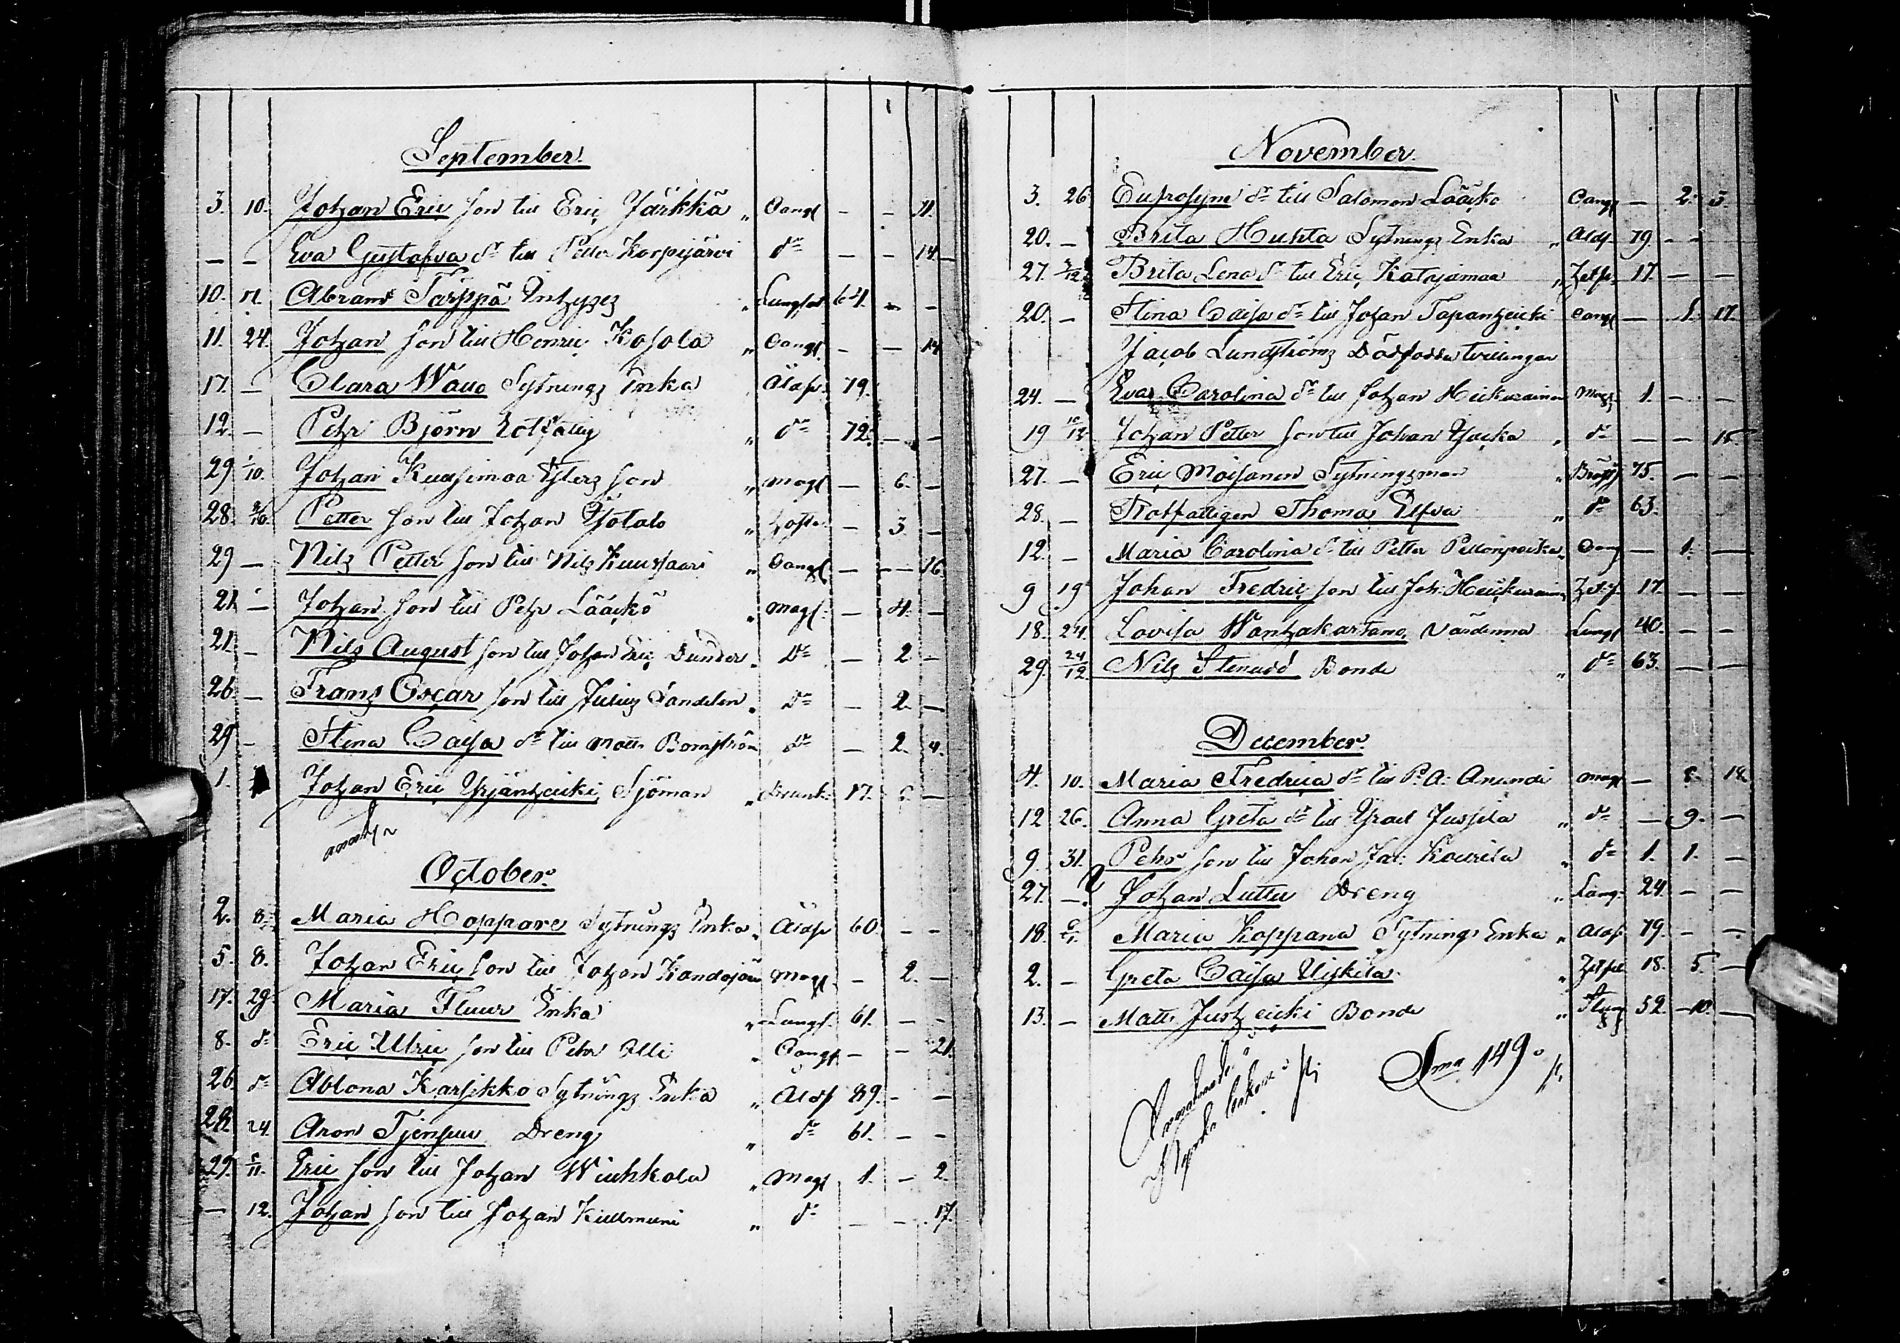 September.
3. 10. Johan Eric son till Eric Järkkä " Oangf — — 11.
— — Eva Gustafva dr till Petter Korpijärvi dº — — 14 —
10. Abram Tarppa " Lungsot 64. — —
11. 24. Johan son till Henric Kosola " Oangf. — — 14
17. — Clara Waua Sytnings Enka " Åldf. 79.
12. — Pehr Björn " dº 72. — —
29 1/10. Johan Kuusimaa Systers son " magf — 6. —
28. 3/10. Petter son till Johan — 3 —
29 — Nils Petter son till Nils Kuusisaari " Oangf. — — 16.
21. — Johan son till Pehr Lääckö " magf. — 4. —
21. — Nils August son till Johan Eric Dunder " Dº — 2. —
26 — Frans Oscar son till Julius Sandelin " Dº — 2. —
29 — Stina Cajsa dr till Matts Bomström dº — 2. 4.
1. Johan Eric Yrjänheicki Sjöman " Drunk. 17. —
October.
2. 8. Maria Hoppare Sytnings Enka " Åldf 60 — —
5. 8. Johan Eric son till Johan Kandajärvi magf — 2. —
17. 29. Maria Fluur Enka " Lungf. 61. — —
8. dº Eric Ulric son till Pehr Olli " Oangf — — 21.
26 dº Ablona Karsikko Sytnings Enka " Åldf 89. — —
28. 24. Aron Dreng " dº 61. — —
29. 5/11. Eric son till Johan Wiuhkola " Magf 1. — 2.
— 12. Johan son till Johan " dº — — 17.
November.
3. 26 Eufrosym dr till Salomon Lääcko Oangf — 2. 3.
20. — Brita Huhta Sytnings Enka " Åldf 79 — —
27. Brita Lena dr till Eric Katajamaa " 17. — —
20. — Stina Cajsa dr till Johan Tapanheicki Oangf — 1. 17.
Jacob Lundströms Dödfödda tvillingar
24. — Eva Carolina dr till Johan Heickurainen Magf 1. — —
19 10/12. Johan Petter son till Johan " dº — — 15
27. — Eric Moisanen Sytningsman " Bröstf 75. — —
28. — Rotfattigen Thomas " dº 63. —
12. — Maria Carolina dr till Petter Oangf — 1. —
9 19 Johan Fredric son till Joh: Heickurainen 17. — —
18. 24. Lovisa Wärdinna Lungf 40. — —
29. 24/12 Nils Stenudd Bonde " dº 63. — —
December.
4. 10. Maria Fredrica dr till P. A. Anundi magf — 8. 18
12 26. Anna Greta dr till Israel Jussila " dº — 9. —
9. 31. Pehr son till Johan Jac: Kourila " dº 1. 1. —
27. — Johan Luttu Dreng " Lung 24. — —
18. Maria Koppana Sytnings Enka " Åldf 79. — —
2. — Greta Cajsa Uiskila " 18. 5. —
13. — Matts Bonde " Styng 52. — 10. —
Sma 149